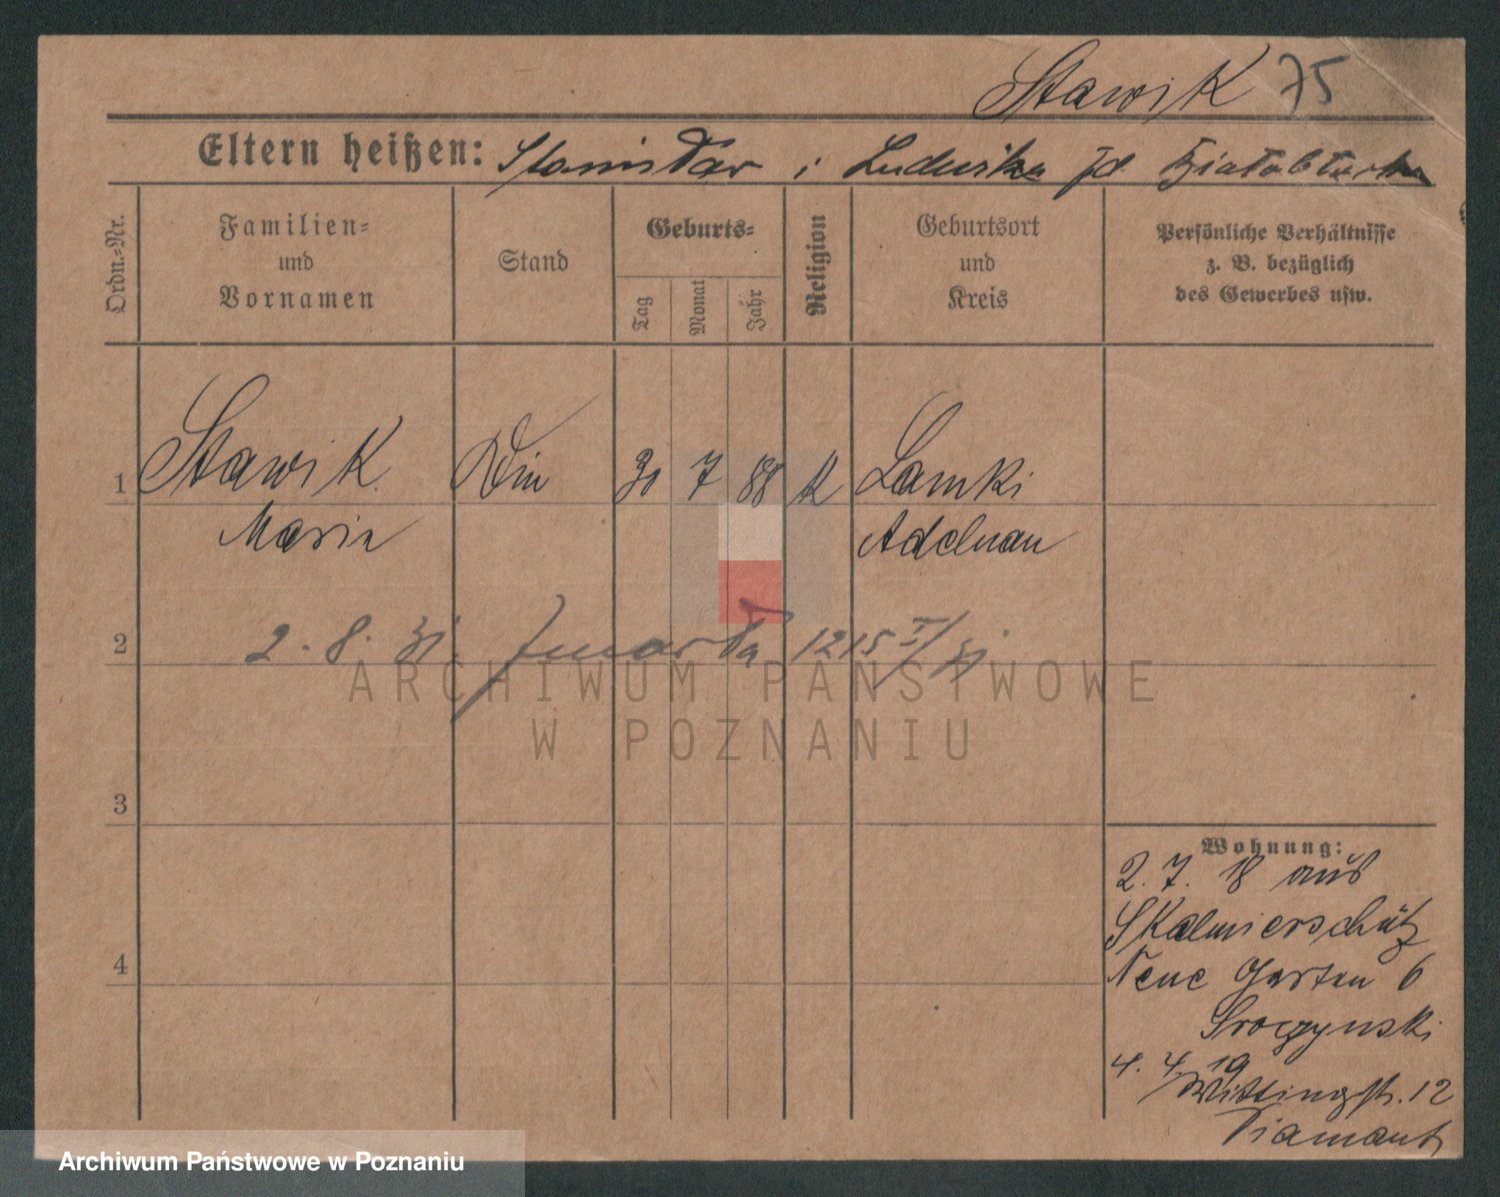 Stawik 75
Eltern heißen: Stanisław i Ludwika zd
Ordn.-Nr.
Familien-
und
Vornamen
Stand
Geburts-
Tag
Monat
Jahr
Religion
Geburtsort
und
Kreis
Persönliche Verhältnisse
z. B. bezüglich
des Gewerbes usw.
1 Stawik Din 30 7 88 K Lamki
Maria Adelnau
2 2. 8. 31. zmarła 1215
ARCHIWUM PAŃSTWOWE
W POZNANIU
3
Wohnung:
2. 7. 18 aus
Skalmierschütz
4
Neue Garten 6
Sroczynski
4. 4. 19
Wittingstr. 12
Diamant
Archiwum Państwowe w Poznaniu